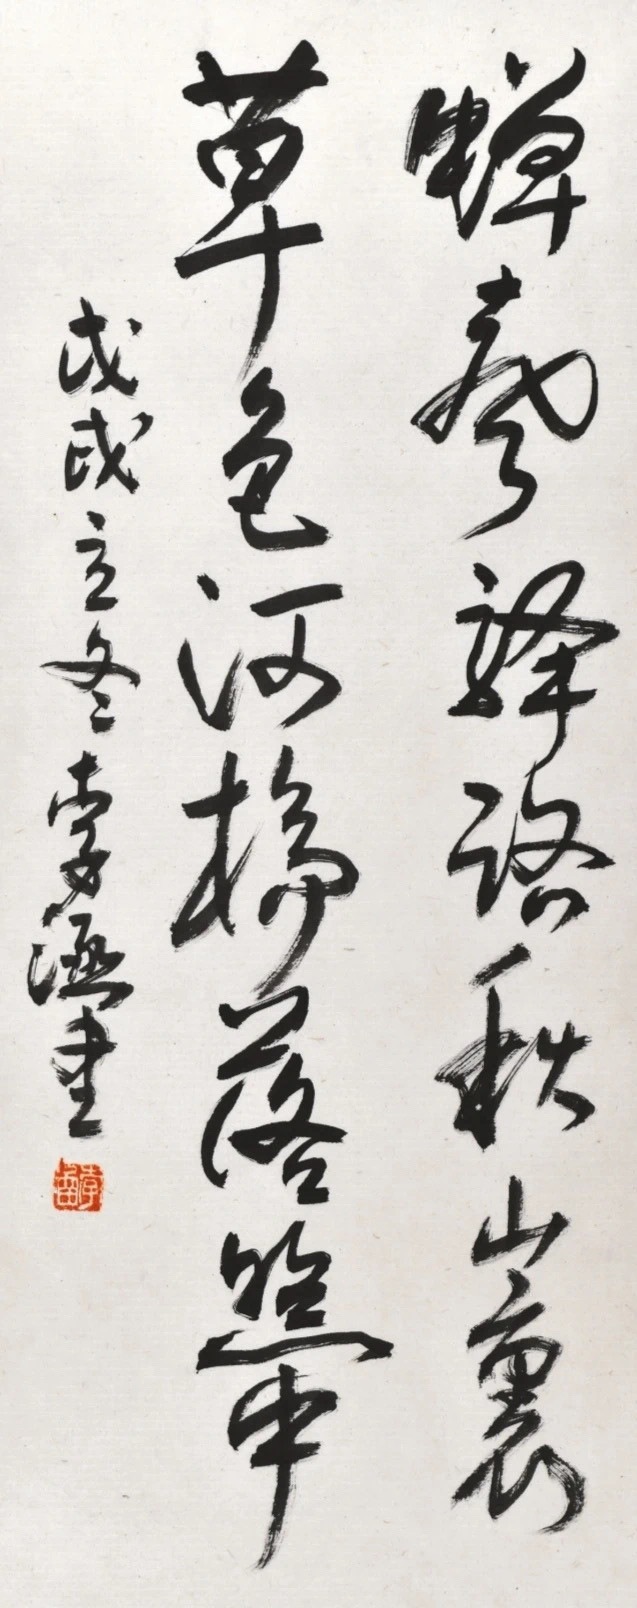 蝉声驿路秋山裏
草色河桥落照中
戊戌立冬李涵书